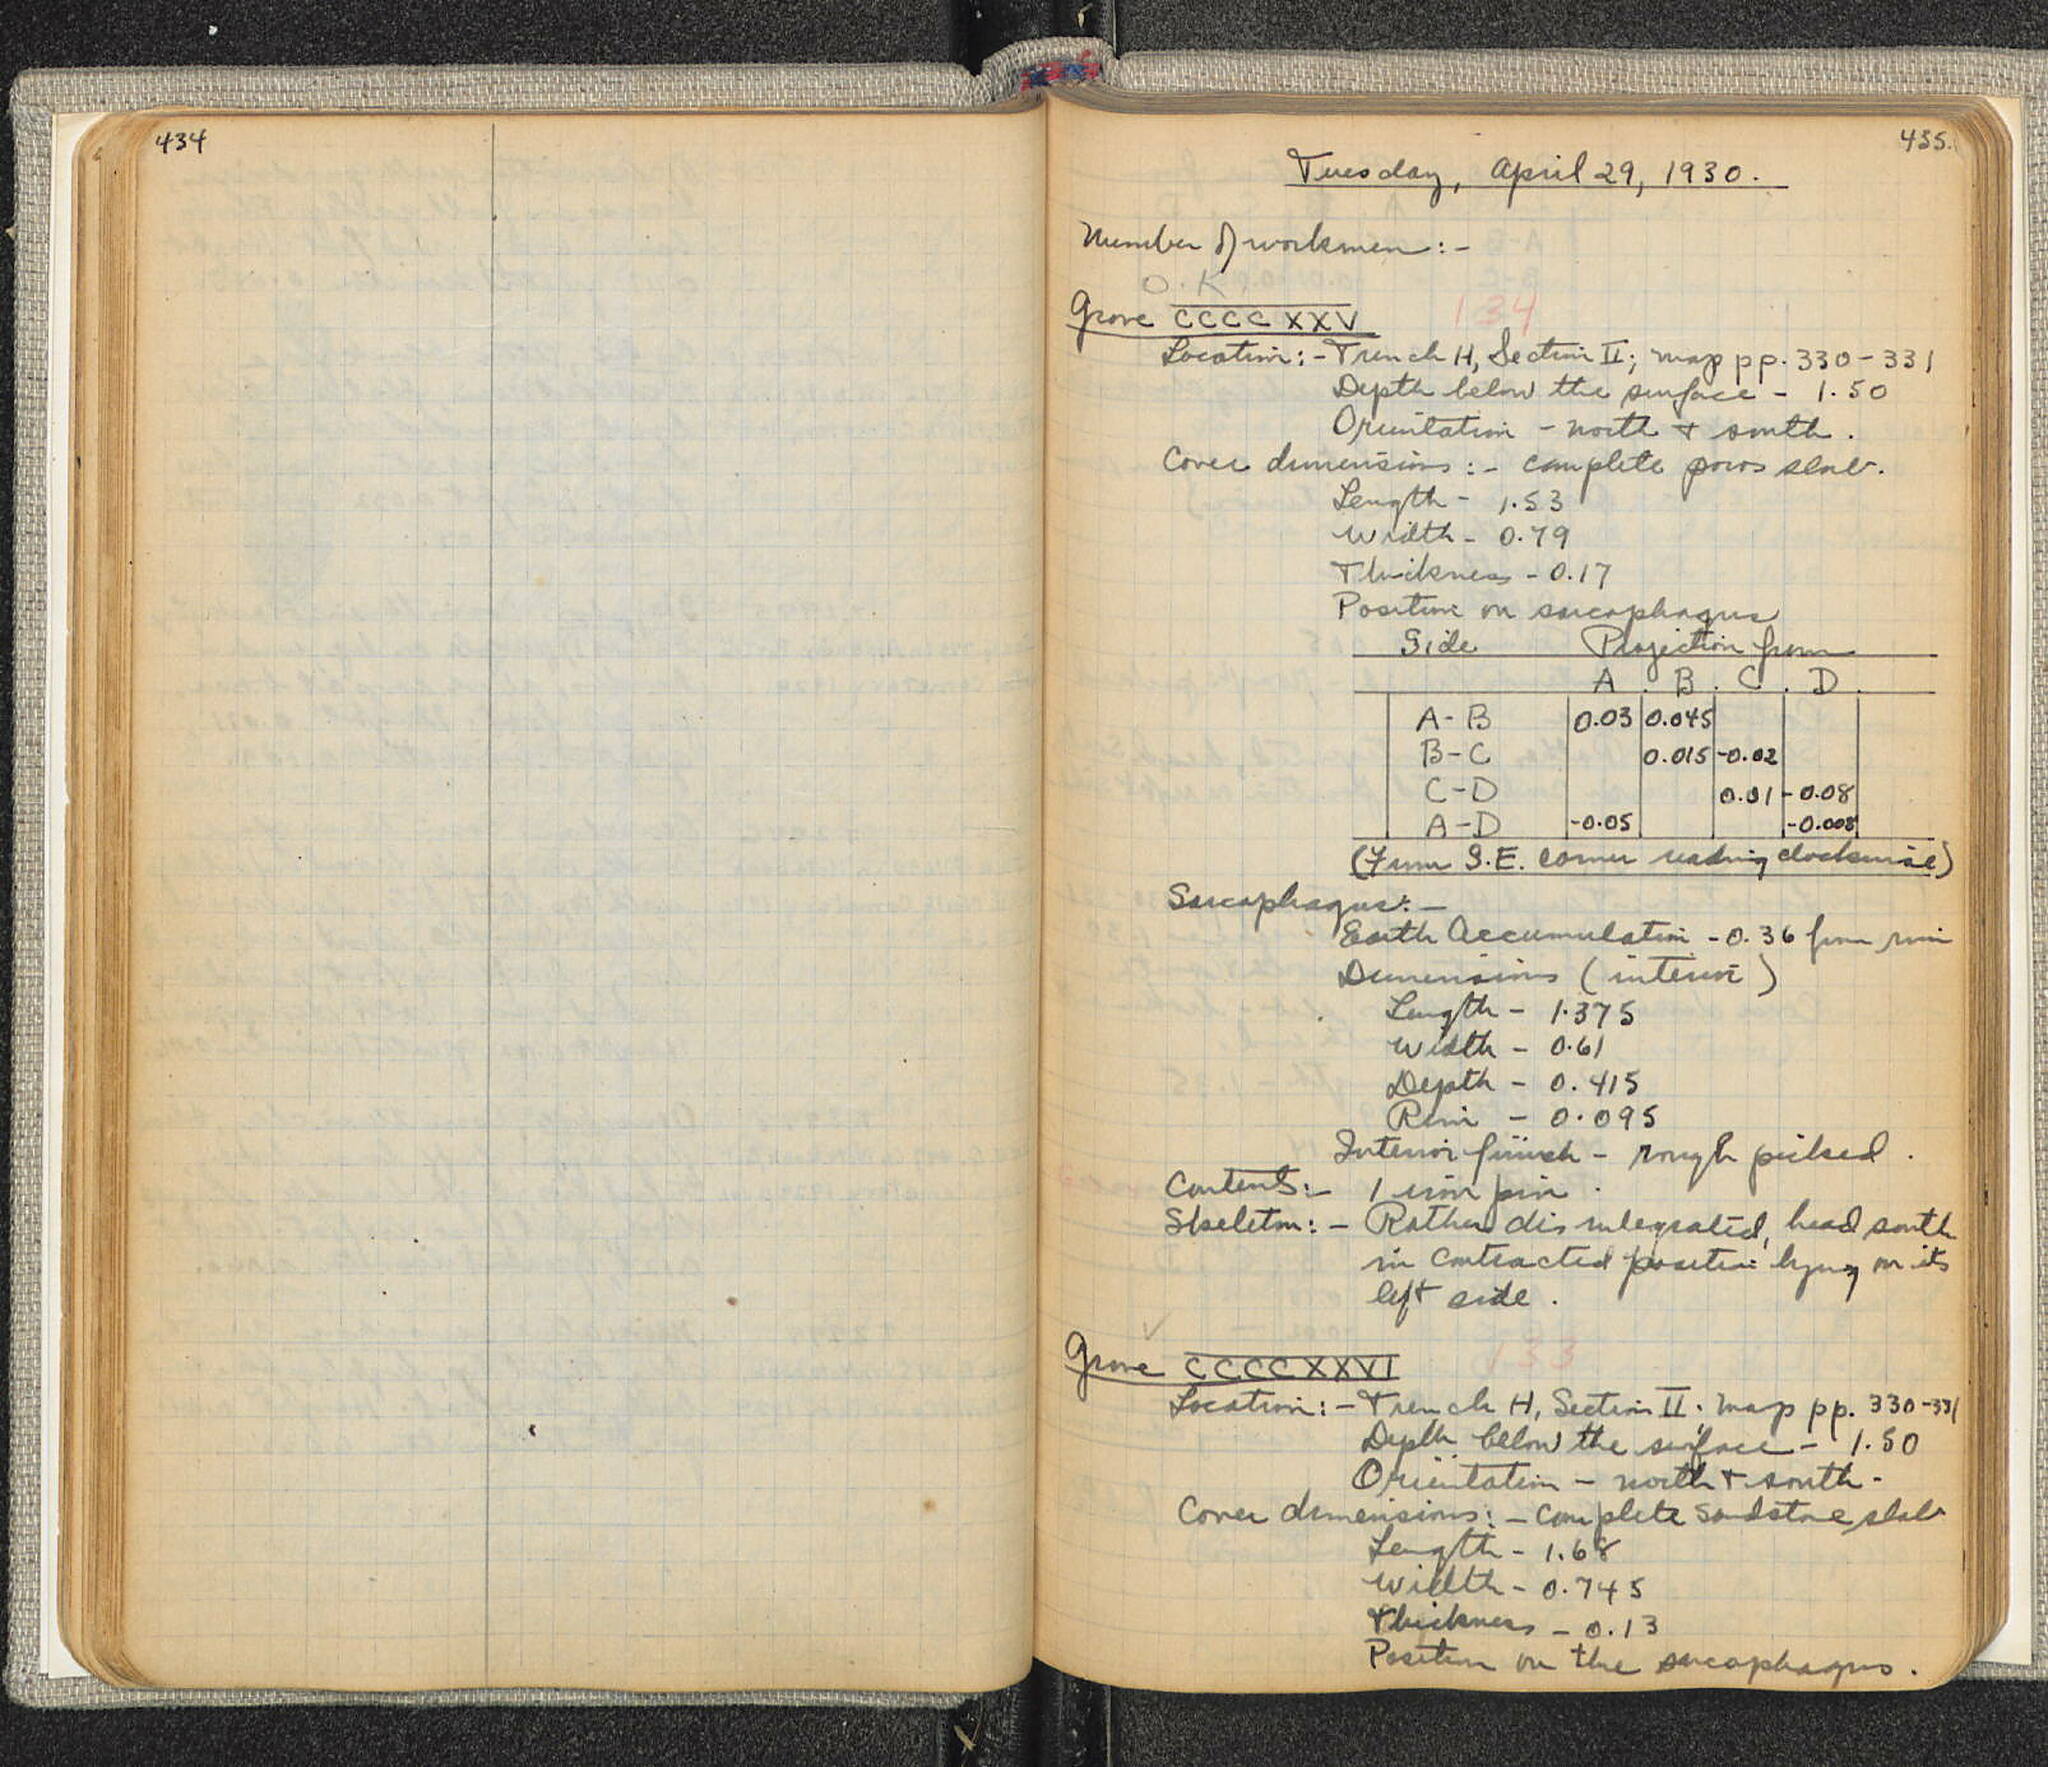 434
435.
Tuesday, April 29, 1930.
Number of workmen:-
O.K
Grave CCCCXXV 134
Location:- Trench H, Section II; map pp. 330-331
Depth below the surface - 1.50
Orientation - north + south.
Cover dimensions:- complete poros slab.
Length - 1.53
Width - 0.79
Thickness - 0.17
Position on sarcophagus
Side Projection from
A B C D
A-B 0.03 0.045
B-C 0.015 -0.02
C-D 0.01 -0.08
A-D -0.05 -0.008
(From S.E. corner reading clockwise)
Sarcophagus:-
Earth Accumulation - 0.36 from rim
Dimensions (interior)
Length - 1.375
Width - 0.61
Depth - 0.415
Rim - 0.095
Interior finish - rough picked.
Contents:- 1 iron pin.
Skeleton:- Rather disintegrated, head south
in contracted position lying on its
left side.
Grave CCCCXXVI 133
Location:- Trench H, Section II; map pp. 330-331
Depth below the surface - 1.50
Orientation - north + south.
Cover dimensions:- complete sandstone slab
Length - 1.68
Width - 0.745
Thickness - 0.13
Position on the sarcophagus.